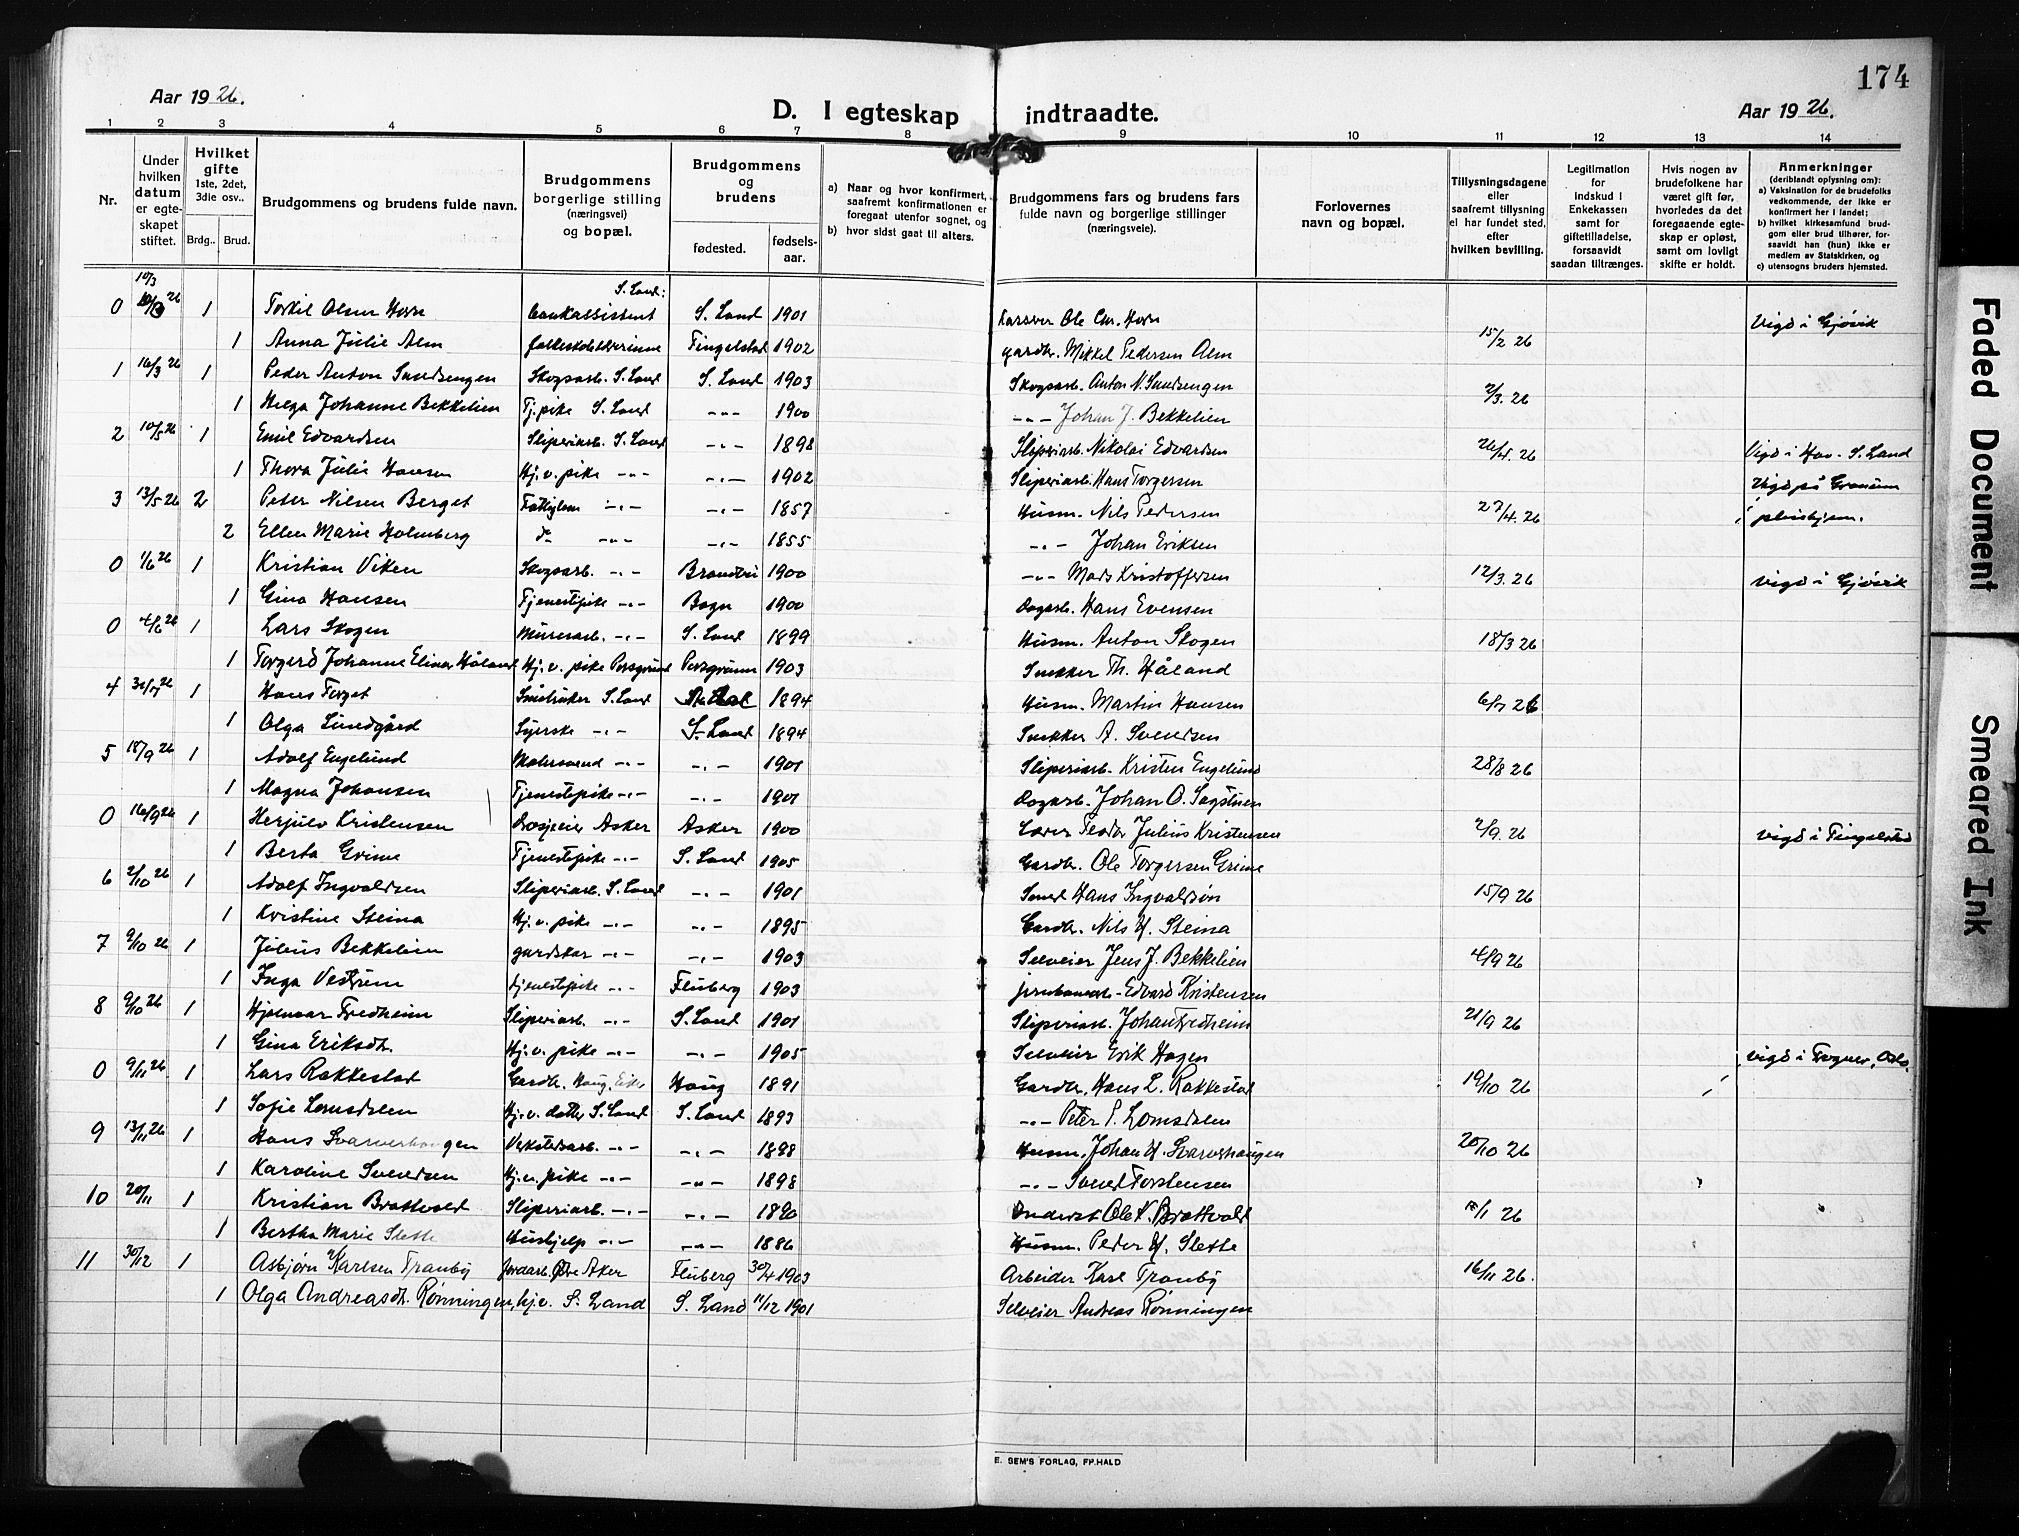 174
Aar 1926.
D. I egteskap indtraadte.
Aar 1926.
1 2 3 4 5 6 7 8 9 10 11 12 13 14
Nr.
Under hvilken datum er egteskapet stiftet.
Hvilket gifte 1ste, 2det, 3die osv..
Brdg.. Brud.
Brudgommens og brudens fulde navn.
Brudgommens borgerlige stilling (næringsvei) og bopæl.
Brudgommens og brudens
fødested. fødselsaar.
a) Naar og hvor konfirmert, saafremt konfirmationen er foregaat utenfor sognet, og
b) hvor sidst gaat til alters.
Brudgommens fars og brudens fars fulde navn og borgerlige stillinger (næringsveie).
Forlovernes navn og bopæl.
Tillysningsdagene eller saafremt tillysning ei har fundet sted, efter hvilken bevilling.
Legitimation for indskud i Enkekassen samt for giftetilladelse, forsaavidt saadan tiltrænges.
Hvis nogen av brudefolkene har været gift før, hvorledes da det foregaaende egteskap er opløst, samt om lovligt skifte er holdt.
Anmerkninger (deriblandt oplysning om): a) Vaksination for de brudefolks vedkommende, der ikke er konfirmert her i landet; b) hvilket kirkesamfund brudgom eller brud tilhører, forsaavidt han (hun) ikke er medlem av Statskirken, og c) utensogns bruders hjemsted.
10/3
S. Land:
0 26 1 Torkil Olsen Horn bankassistent S. Land 1901 Ole Chr. Horn Vigd i Gjøvik
1 Anna Julie Alm Tingelstad 1902 gardbr. Mikkel Pedersen Alm 15/2 26
1 16/3 26 1 Peder Anton Sandsengen Skogsarb. S. Land S. Land 1903 Skogsarb. Anton N. Sandsengen 2/3. 26
1 Helga Johanne Bekkelien Tj. pike S. Land -"- 1900 -"- Johan J. Bekkelien
2 10/5 26 1 Emil Edvardsen Sliperiarb. S. Land -"- 1898 Sliperiarb. Nikolai Edvardsen 26/4. 26 Vigd i Hov. S. Land
1 Thora Julie Hansen Hj. v. pike -"- -"- 1902 Sliperiarb. Hans Torgersen
3 13/5 26 2 Peter Nilsen Berget Fattiglem -"- -"- 1857 Husm. Nils Pedersen 27/4. 26 Vigd på Granum
2 Ellen Marie Holmberg do -"- -"- 1855 -"- Johan Eriksen pleiehjem.
0 1/6 26 1 Kristian Viken Skogsarb. -"- Brandbu 1900 -"- Mads Kristoffersen 12/3. 26 Vigd i Gjøvik
1 Gina Hansen Tjenestepike -"- Bagn 1900 Dagarb. Hans Evensen
0 4/6 26 1 Lars Skogen Murerarb. -"- S. Land 1899 Husm. Anton Skogen 18/3 26
1 Torgerd Johanne Elina Håland Hj. v. pike Porsgrund Porsgrunn 1903 Snekker Th. Håland
4 31/7 26 1 Hans Torget Småbruker S. Land 1894 Husm. Martin Hansen 6/7 26
1 Olga Lundgård Syerske -"- S. Land 1894 Snekker A. Svendsen
5 18/9 26 1 Adolf Engelund Malersvend -"- -"- 1901 Sliperiarb. Kristen Engelund 28/8 26
1 Magna Johansen Tjenestepike -"- -"- 1901 Dagarb. Johan O. Sagstuen
0 16/9 26 1 Herjulv Kristensen Asker Asker 1900 Lærer Teodor Julius Kristensen 2/9. 26 Vigd i Tingelstad
1 Berta Grime Tjenestepike -"- S. Land 1905 Gardbr. Ole Torgersen Grime
6 2/10 26 1 Adolf Ingvaldsen Sliperiarb. S. Land -"- 1901 Smed Hans Ingvaldsøn 15/9 26
1 Kristine Steina Hj. v. pike -"- -"- 1895 Gardbr. Nils H. Steina
7 9/10 26 1 Julius Bekkelien gardskar -"- -"- 1903 Selveier Jens J. Bekkelien 4/9 26
1 Inga Vestrum tjenestepike -"- Fluberg 1903 Edvard Kristensen
8 9/10 26 1 Hjalmar Fredheim Sliperiarb. -"- S. Land 1901 Sliperiarb. Johan Fredheim 21/9 26
1 Gina Eriksdt. Hj. v. pike -"- -"- 1905 Selveier Erik Hagen
0 9/11 26 1 Lars Rakkestad Gardbr. Haug, Eiker Haug 1891 Gardbr. Hans L. Rakkestad 19/10 26 Vigd i Frogner, Oslo
1 Sofie Lomsdalen Hj. v. datter S. Land S. Land 1893 -"- Peter P. Lomsdalen
9 13/11 26 1 Hans Svarverhaugen Verkstedsarb. -"- -"- 1898 Husm. Johan H. Svarverhaugen 20/10 26
1 Karoline Svendsen Hj. v. pike -"- -"- 1898 -"- Svend Torstensen
10 20/11 1 Kristian Brattvold Sliperiarb. -"- -"- 1890 Ole K. Brattvold 26
1 Bertha Marie Slette Hushjelp -"- -"- 1886 Husm. Peder H. Slette
11 30/12 1 Asbjørn Karlsen Tranby Jordarb. Øvre Aker Fluberg 30/4 1903 Arbeider Karl Tranby 16/11 26.
1 Olga Andreasdt. Rønningen, hj.v. S. Land S. Land 11/12 1901 Selveier Andreas Rønningen
E. SEM'S FORLAG, FR.HALD
Faded Document
Smeared Ink